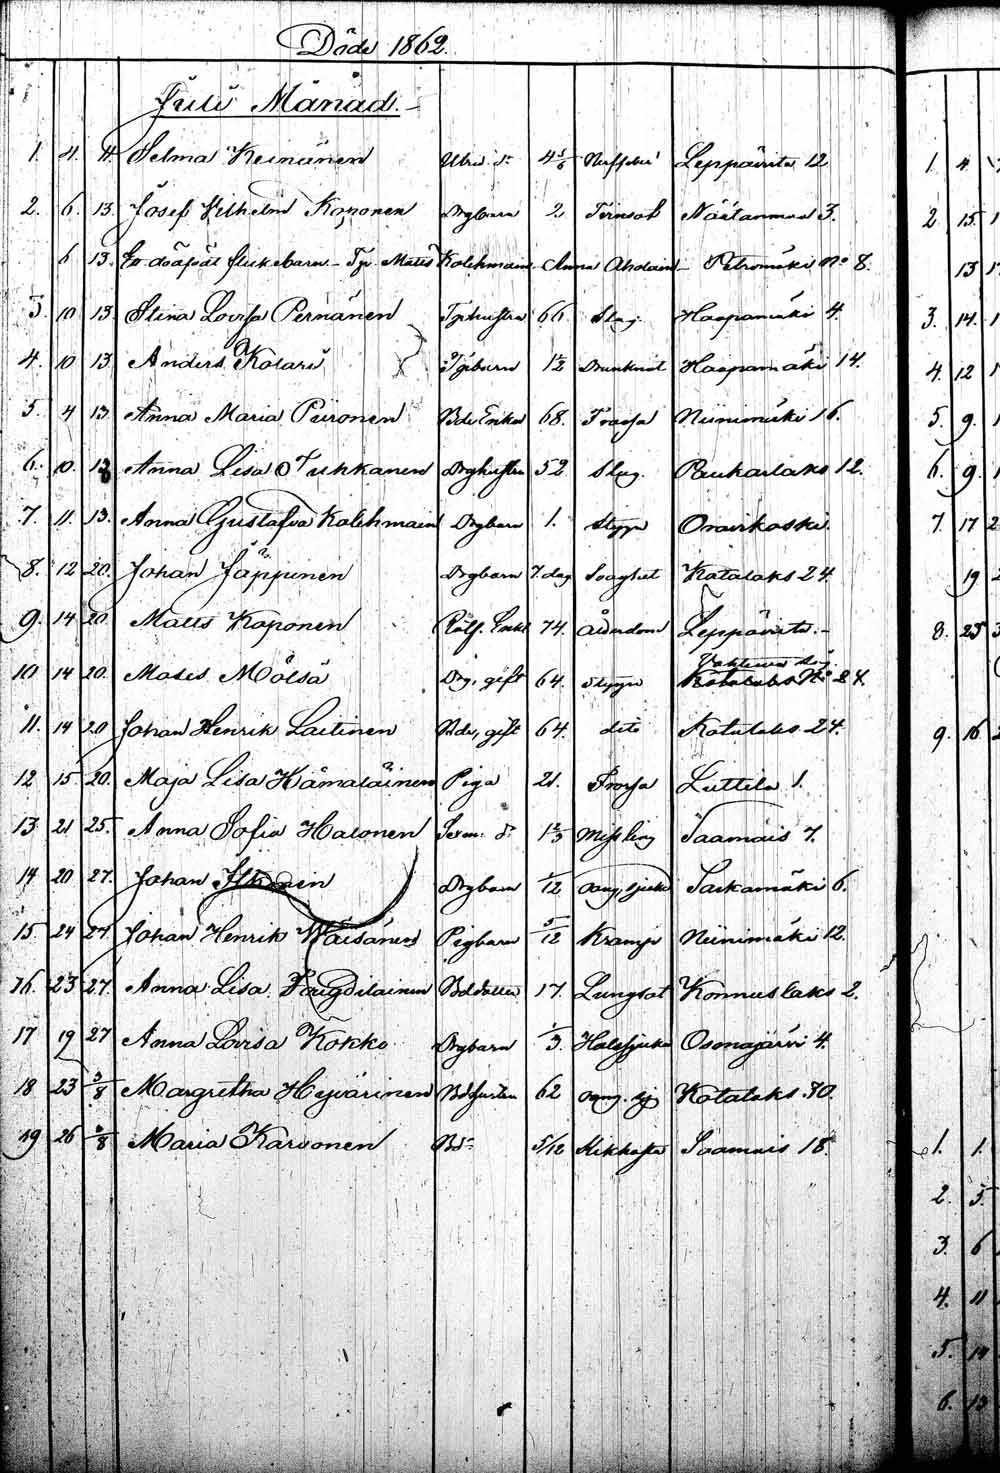 Döde 1862.
Juli Månad.
1. 4. 11. Selma Keinänen 4 5/6 Leppävirta 12
2. 6. 13. Josef Vilhelm Koponen Drgbarn 2. Tvinsot Näätänmaa 3.
6 13. Ett dödfödt flickebarn - Tjr Matts Kolehmain - Anna Ahdain - Petromäki No 8.
3. 10 13. Stina Lovisa Pernänen Tjrhustru 66. Slag. Haapamäki 4.
4. 10 13. Anders Kolari Tjrbarn 1½ Drunknat Haapamäki 14.
5. 4 13. Anna Maria Piironen Bde Enka 68. Frossa Niinimäki 16.
6. 10. 13 Anna Lisa Tukkanen Drghustru 52 Slag. Paukarlaks 12.
7. 11. 13. Anna Gustafva Kolehmain Drgbarn 1. Stygn Oravikoski
8. 12 20. Johan Jäppinen Drgbarn 7. dag Svaghet Kotalaks 24.
9. 14 20. Matts Koponen 74. Ålderdom Leppävirta. -
10 14 20. Moses Mölsä Drg. gift 64. Stygn Kotalaks No 24.
11. 14 20 Johan Henrik Laitinen Bde, gift 64. dito Kotalaks 24.
12 15 20. Maja Lisa Hämäläinen Piga 21. Frossa Luttila 1.
13 21 25. Anna Sofia Halonen 1 2/3 Messling Saamais 7.
14 20 27. Johan Ikonen Drgbarn 1/12 Oang. sjukd Sarkamäki 6.
15. 24 27. Johan Henrik Wäisänen Pigbarn 5/12 Kramp Niinimäki 12.
16. 23 27. Anna Lisa Bddotter 17. Lungsot Konnuslaks 2.
17 19 27 Anna Lovisa Kokko Drgbarn 1/3. Halssjuka Osmajärvi 4.
18 23 3/8 Margretha Hyvärinen Bdhustru 62 oang. sj Kotalaks 30.
19 26 3/8 Maria Karvonen Bd: 5/12 Kikhosta Saamais 18.
1. 4
2. 15
13
3. 14.
4. 12
5. 9.
6. 9
7. 17
19
8. 25
9. 16
1. 1.
2. 5.
3. 6
4. 11
5.
6. 13